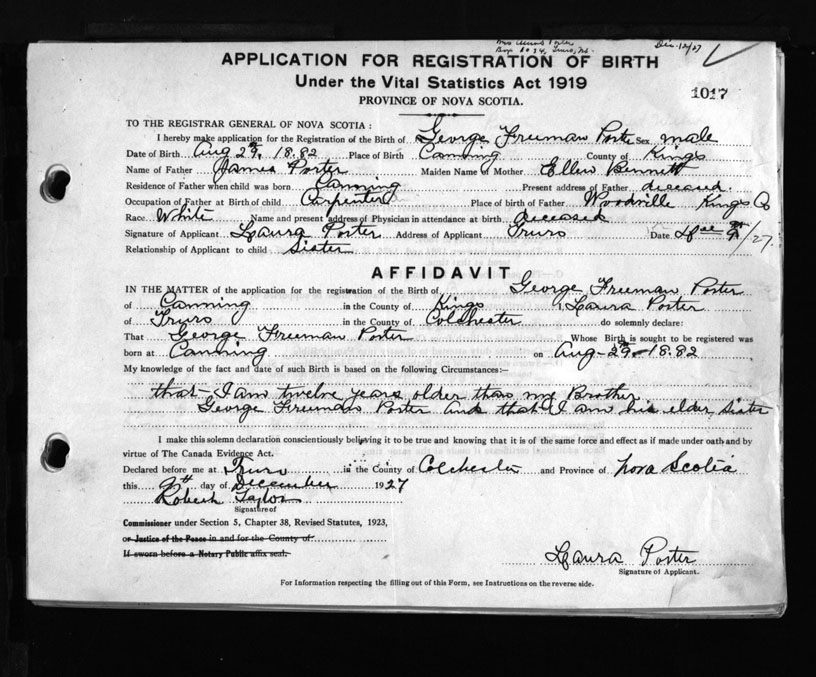 Mrs Porter Dec. 12/27
Box 1034, Truro, NS.
APPLICATION FOR REGISTRATION OF BIRTH
Under the Vital Statistics Act 1919
1017
PROVINCE OF NOVA SCOTIA.
TO THE REGISTRAR GENERAL OF NOVA SCOTIA:
I hereby make application for the Registration of the Birth of George Freeman Porter Sex male
Date of Birth Aug 29th, 1882 Place of Birth Canning County of Kings
Name of Father James Porter Maiden Name of Mother Ellen Bennett
Residence of Father when child was born Canning Present address of Father deceased.
Occupation of Father at Birth of child Carpenter Place of birth of Father Woodville Kings Co
Race White Name and present address of Physician in attendance at birth deceased
Signature of Applicant Laura Porter Address of Applicant Truro Date Dec 9th/27.
Relationship of Applicant to child Sister
AFFIDAVIT
IN THE MATTER of the application for the registration of the Birth of George Freeman Porter
of Canning in the County of Kings I, Laura Porter
of Truro in the County of Colchester do solemnly declare:
That George Freeman Porter Whose Birth is sought to be registered was
born at Canning on Aug-29th-1882
My knowledge of the fact and date of such Birth is based on the following Circumstances:—
that - I am twelve years older than my Brother
George Freeman Porter and that I am his elder sister
I make this solemn declaration conscientiously believing it to be true and knowing that it is of the same force and effect as if made under oath and by
virtue of The Canada Evidence Act.
Declared before me at Truro in the County of Colchester and Province of Nova Scotia
this 9th day of December 1927
Robert Taylor
Signature of
Commissioner under Section 5, Chapter 38, Revised Statutes, 1923,
or Justice of the Peace in and for the County of
If sworn before a Notary Public affix seal.
Laura Porter
Signature of Applicant.
For Information respecting the filling out of this Form, see Instructions on the reverse side.